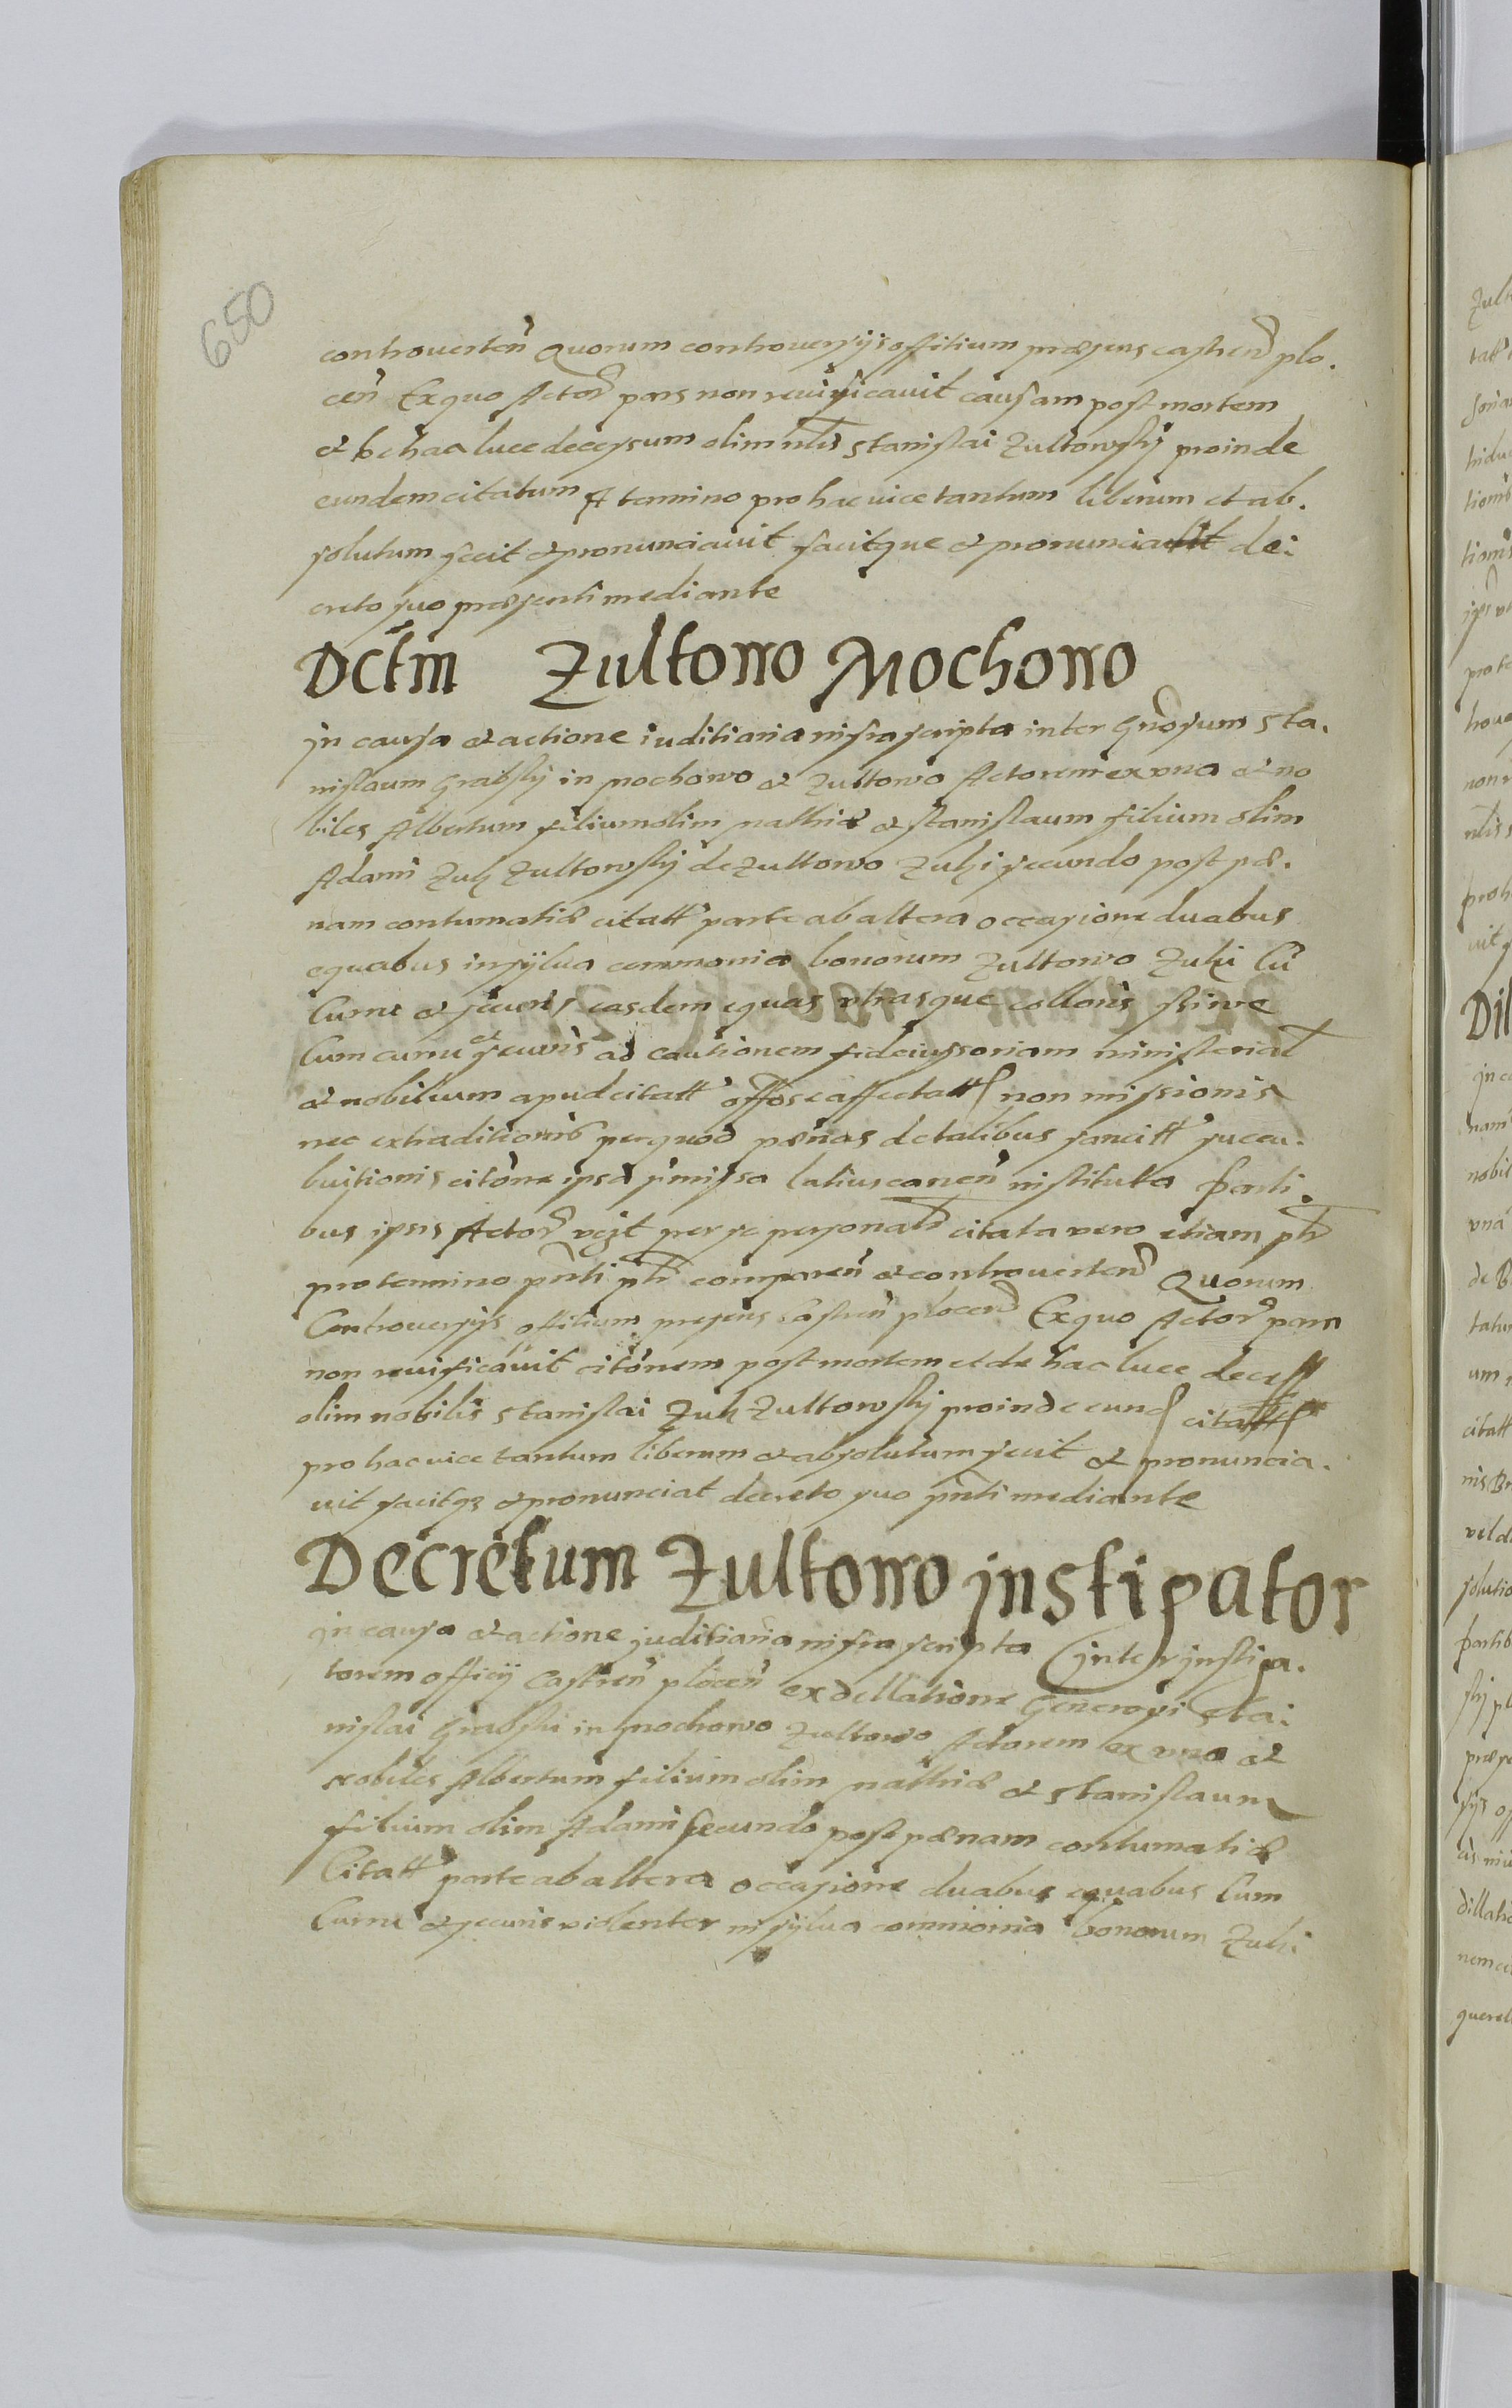 650
controverten Quorum controversijs offitium præsens castren plo.
cen Ex quo Actor pars non revificavit causam post mortem
et de hac luce decessum olim nlis Stanislai Zultowskj proinde
eundem citatum A termino pro hac vice tantum liberum et ab.
solutum fecit et pronunciavit facitque et pronunciat de:
creto suo præsenti mediante
Dctm Zultowo Mochowo
jn causa et actione iuditiaria infrascripta inter Gnosum Sta.
nislaum Grabskj in Mochowo et Zultowo Actorem ex una et no
biles Albertum filium olim Mathiæ et Stanislaum filium olim
Adami Zuk Zultowskj de Zultowo Zuki secundo post pæ.
nam contumatiæ citatt parte ab altera occasione duabus
equabus in sylva bonorum Zultowo Zuki Cu
Curru et securis easdem equas utrasque
Cum curru et securis ad cautionem fideiussoriam ministerial
et nobilium apud citatt non missionis
nec extraditionis per quod pænas de talibus sancitt succu.
buitionis citone ipsa latius canen instituta Parti.
bus ipsis Actor per se personal citata vero etiam
pro termino pnti comparen et controverten Quorum
Controversijs offitium presens castren plocen Ex quo Actor pars
non revificavit citonem post mortem et de hac luce decess
olim nobilis Stanislai Zuk Zultowskj proinde eund citatt
pro hac vice tantum liberum et absolutum fecit et pronuncia.
vit facitqz et pronunciat decreto suo pnti mediante
Decretum Zultowo jnstigator
jn causa et actione juditiaria infrascripta jnter jnstiga.
torem officij Castren plocen ex dellatione Generosi Sta:
nislai Grabski in Mochowo Zultowo Actorem ex una et
nobiles Albertum filium olim Mathiæ et Stanislaum
filium olim Adami secundo post pænam contumatiæ
Citatt parte ab altera occasione duabus equabus Cum
Curru et securis violenter in sylva bonorum Zuki